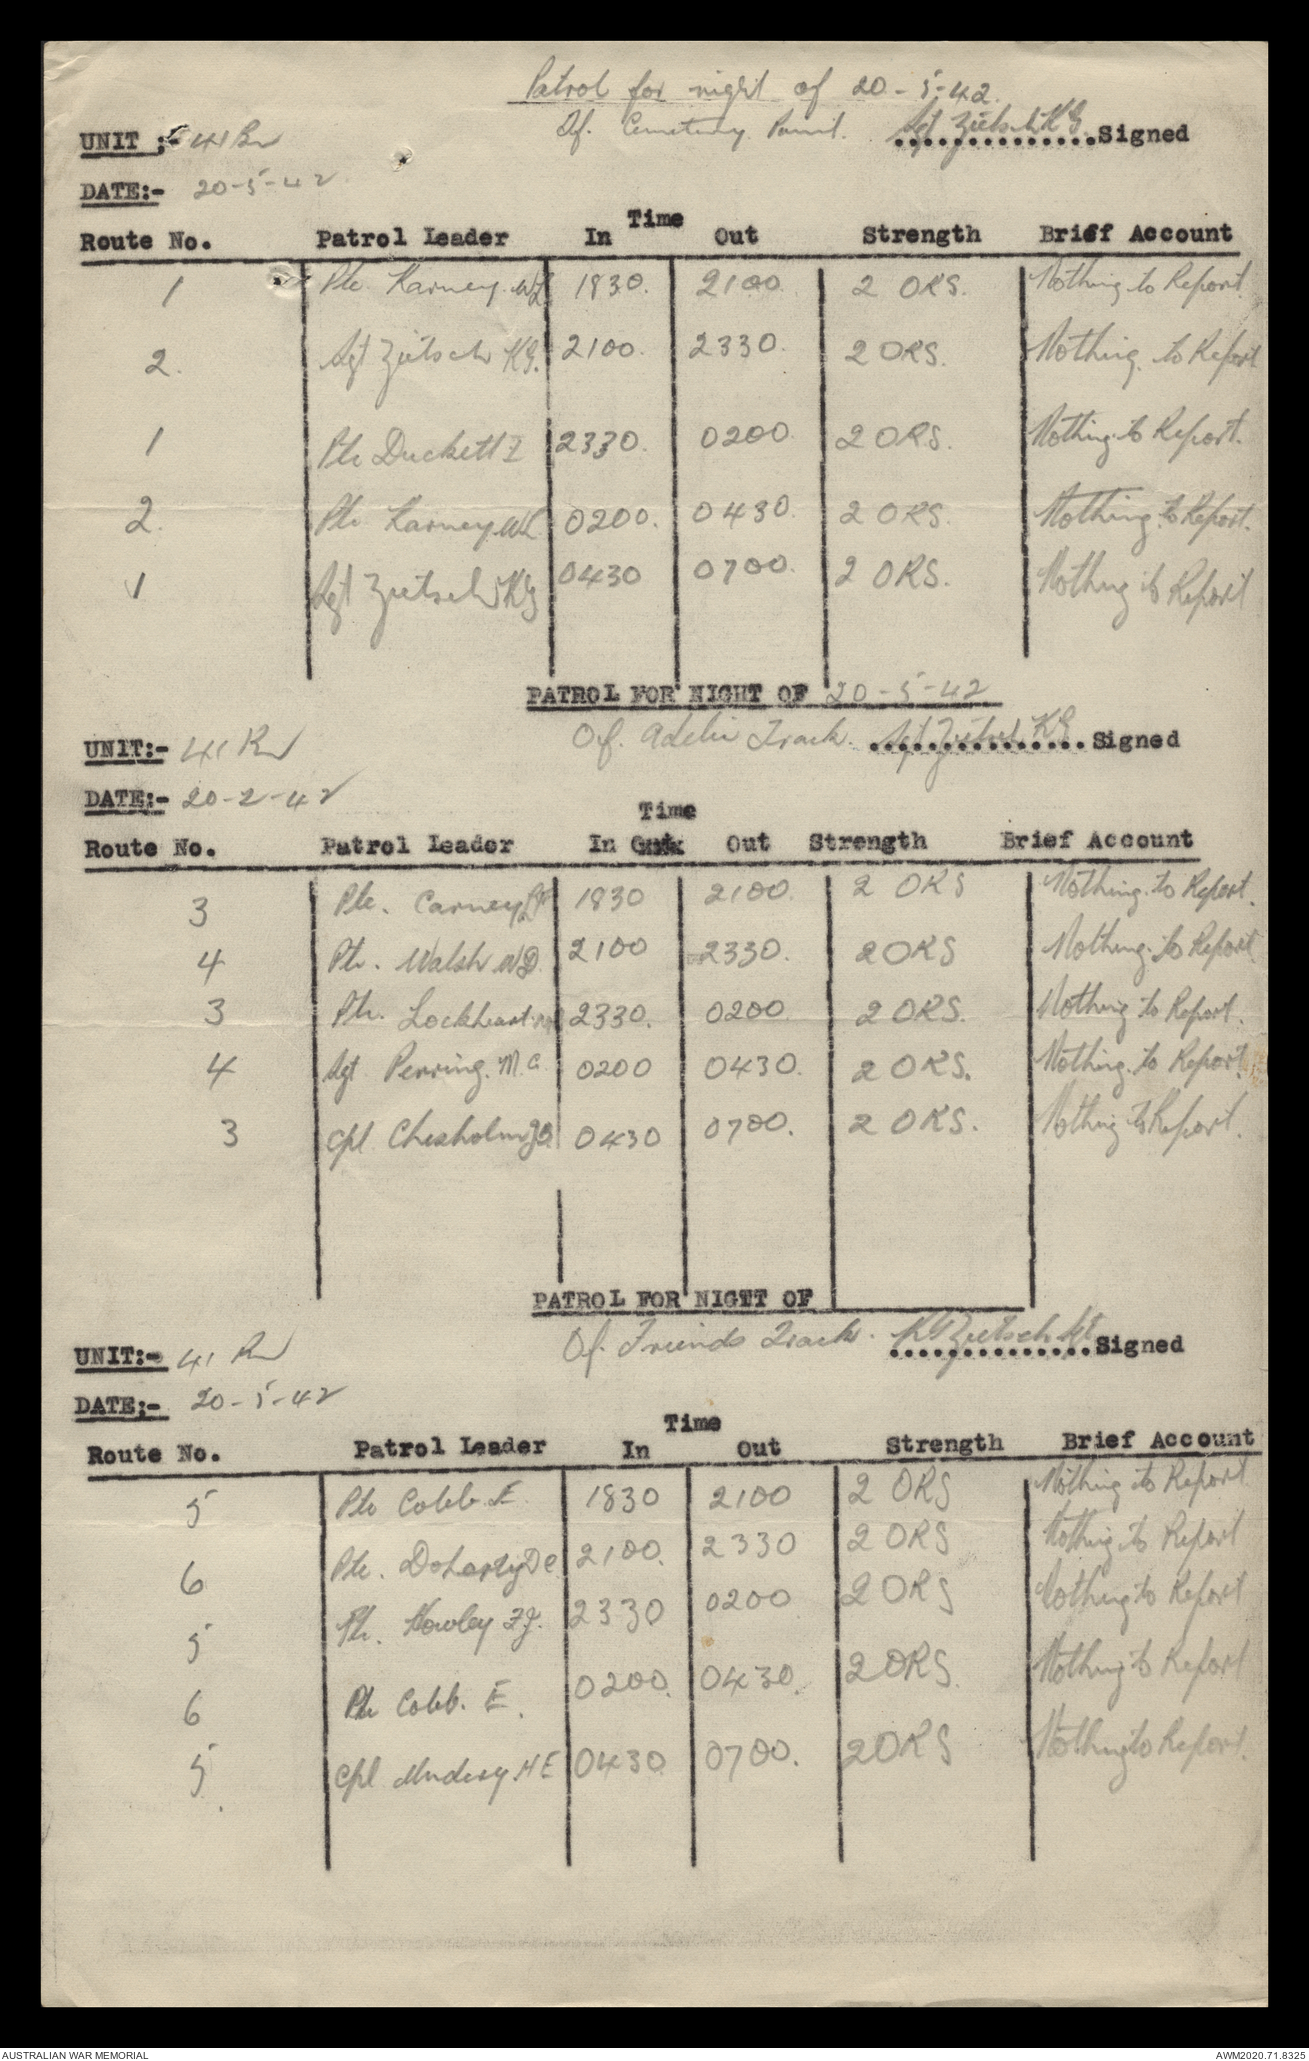 Patrol for night of 20-5-42.
Of. Cemetery Point. Sgt Zietsch KG Signed
UNIT :- 41 Bn
DATE:- 20-5-42
Time
Route No. Patrol Leader In Out Strength Brief Account
1 Pte Karney. WL 1830. 2100 2 ORS. Nothing to Report.
2. Sgt Zietsch KG. 2100. 2330. 2 ORS. Nothing to Report
1 Pte Duckett 2330. 0200. 2 ORS. Nothing to Report.
2. Pte Karney. WL 0200. 0430. 2 ORS. Nothing to Report.
1 Sgt Zietsch KG 0430 0700. 2 ORS. Nothing to Report
PATROL FOR NIGHT OF 20-5-42
Of. Adelin Track. Sgt Zietsch KG Signed
UNIT:- 41 Bn
DATE:- 20-2-42
Time
Route No. Patrol Leader In Out Strength Brief Account
3 Pte. Carney 1830 2100. 2 ORS Nothing to Report.
4 Pte. Walsh WD. 2100 2330. 2 ORS Nothing to Report
3 Pte. Lockheart 2330. 0200 2 ORS. Nothing to Report.
4 Sgt Perring. M.C. 0200 0430. 2 ORS. Nothing to Report.
3 Cpl Chesholm 0430 0700. 2 ORS. Nothing to Report.
PATROL FOR NIGTT OF
Of. Friends Track. KG Zietsch Sgt Signed
UNIT:- 41 Bn
DATE;- 20-5-42
Time
Route No. Patrol Leader In Out Strength Brief Account
5 Pte Cobb. E 1830 2100 2 ORS Nothing to Report
6 Pte. Doharty DC 2100. 2330 2 ORS Nothing to Report
5 Pte. Howley F.J. 2330 0200 2 ORS Nothing to Report
6 Pte Cobb. E. 0200. 0430. 2 ORS. Nothing to Report
5 Cpl HE 0430 0700. 2 ORS Nothing to Report.
AUSTRALIAN WAR MEMORIAL AWM2020.71.8325